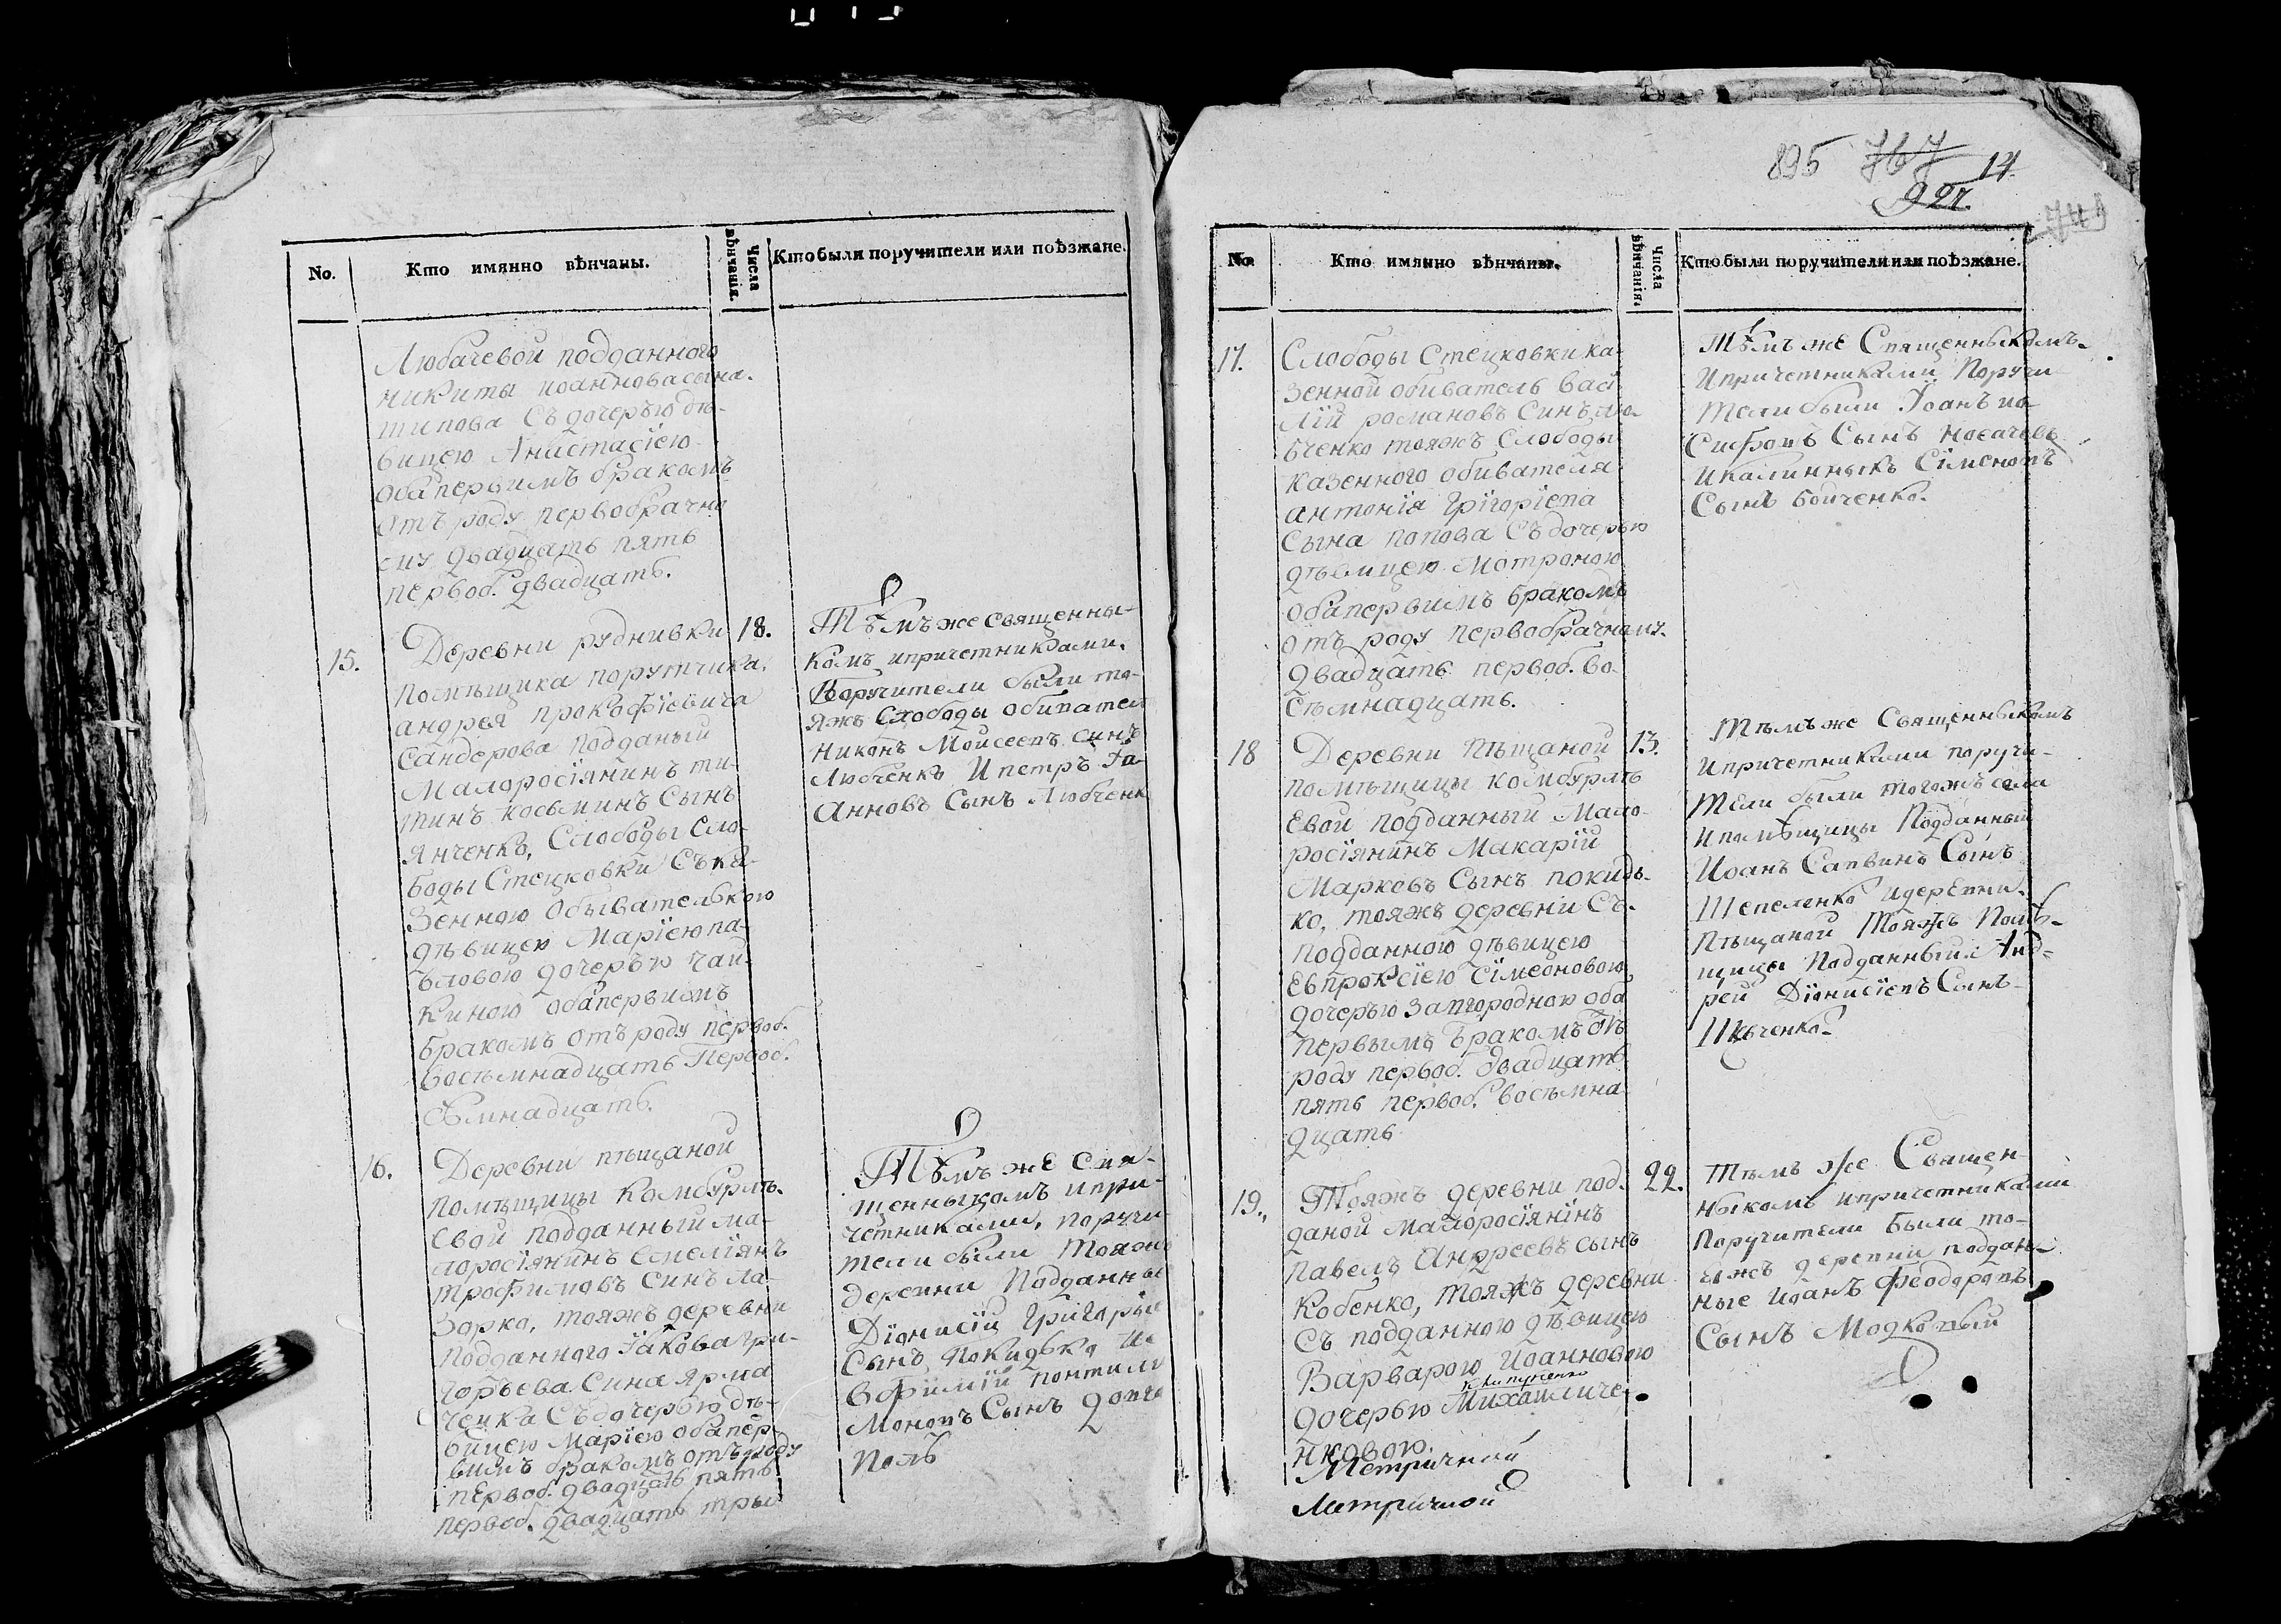 No.
Кто имянно вѣнчаны.
Числа вѣнчанія.
Кто были поручители или поѣзжане.
Любачевой подданного
никиты иоаннова сына
типова Съ дочерью дѣ-
вицею Анастасіею
оба первимъ бракомъ
отъ роду первобрачно
му двадцать пять
первоб. двадцать.
15.
Деревни руднивки
помѣщика порутчика
андрея прокофіевича
Сандерова подданый
Малоросіянинъ ти-
тинъ косьминъ Сынъ
янченко, Слободы Сло-
боды Стецковки Съ ка-
зенною обывателькою
дѣвицею Маріею па-
вловою дочерью чай-
киною оба первимъ
бракомъ отъ роду первоб.
восъмнадцать Первоб.
сѣмнадцать.
18.
Тѣмъ же священны-
комъ ипричетниками.
Поручители были то-
яжъ Слободы обивател
Никонъ Моисеевъ синъ
Любченко И петръ Іо-
Анновъ Сынъ Любченк
16.
Деревни пѣщаной
помѣщицы Камбурлѣ-
евой подданный ма-
лоросіянинъ Емеліянъ
трофимовъ синъ ла-
зорко, тояжъ деревни
подданного Іакова гри-
горъева Сина ярма
ченка Съ дочерью дѣ-
вицею Маріею оба пер-
вимъ бракомъ отъ роду
первоб. двадцать пять
первоб. двадцать тры
Тѣмъ же Свя-
щенныкомъ ипри-
четниками, поручи-
тели были Тояжъ
деревни Подданные
Діонисій Григорье
Сынъ Покидько
Сынъ
895 767 14
927.
No.
Кто имянно вѣнчаны.
Числа вѣнчанія.
Кто были поручители или поѣзжане.
17.
Слободы Стецковки ка-
зенной обиватель васі
лій романовъ Синъ лю
бченко тояжъ Слободы
казенного обивателя
антонія Грігоріева
Сына попова Съ дочерью
дѣвицею Мотроною
оба первимъ бракомъ
отъ роду первобрачному.
двадцать первоб. во-
сѣмнадцать.
Тѣмъ же Священныкомъ
Ипричетниками Поручи
тели были Іоанъ ио-
Сифовъ Сынъ Носачевъ
Икалинныкъ Сіменовъ
Сынъ бойченко.
18
Деревни Пѣщаной
помѣщицы комбурлѣ
евой подданный Мало-
росіянинъ Макарій
Марковъ Сынъ покидь-
ко, тояжъ деревни Съ
подданною дѣвицею
Евпроксіею Сімеоновою
дочерью Загородною оба
первымъ бракомъ отъ
роду первоб. двадцать
пять первоб. восъмна
дцать
13.
Тѣмъ же Священныкомъ
ипричетниками поручи-
тели были тогожъ села
Ипомѣщицы Подданный
Иоанъ Саввинъ Сынъ
Шепеленко идеревни
Пѣщаной Тояжъ Помѣ-
щицы Подданный Анд-
рей Діонисіевъ Сынъ
Шевченко
19.
Тояжъ деревни под-
даной малоросіянінъ
павелъ Андреевъ сынъ
Кобенко, тояжъ деревни
съ подданною дѣвицею
Варварою Иоанновою
дочерью Михайличе-
нковою.
Метричний
Метричной
22.
Тѣмъ же Священ-
ныкомъ ипричетниками
Поручители были то-
яжъ деревни поддан-
ные Иоанъ Феодоровъ
Сынъ